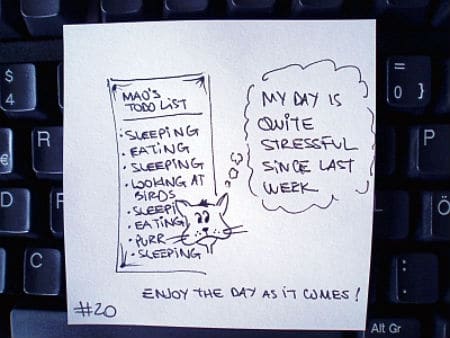 MAO'S
TODO LIST
· SLEEPING
· EATING
· SLEEPING
· LOOKING AT
BIRDS
· SLEEPI
· EATING
· PURR
· SLEEPING
MY DAY IS
QUITE
STRESSFUL
SINCE LAST
WEEK
ENJOY THE DAY AS IT COMES!
#20
$
4
=
0 }
R
P
€
D
F
Ö
C
:
.
Alt Gr